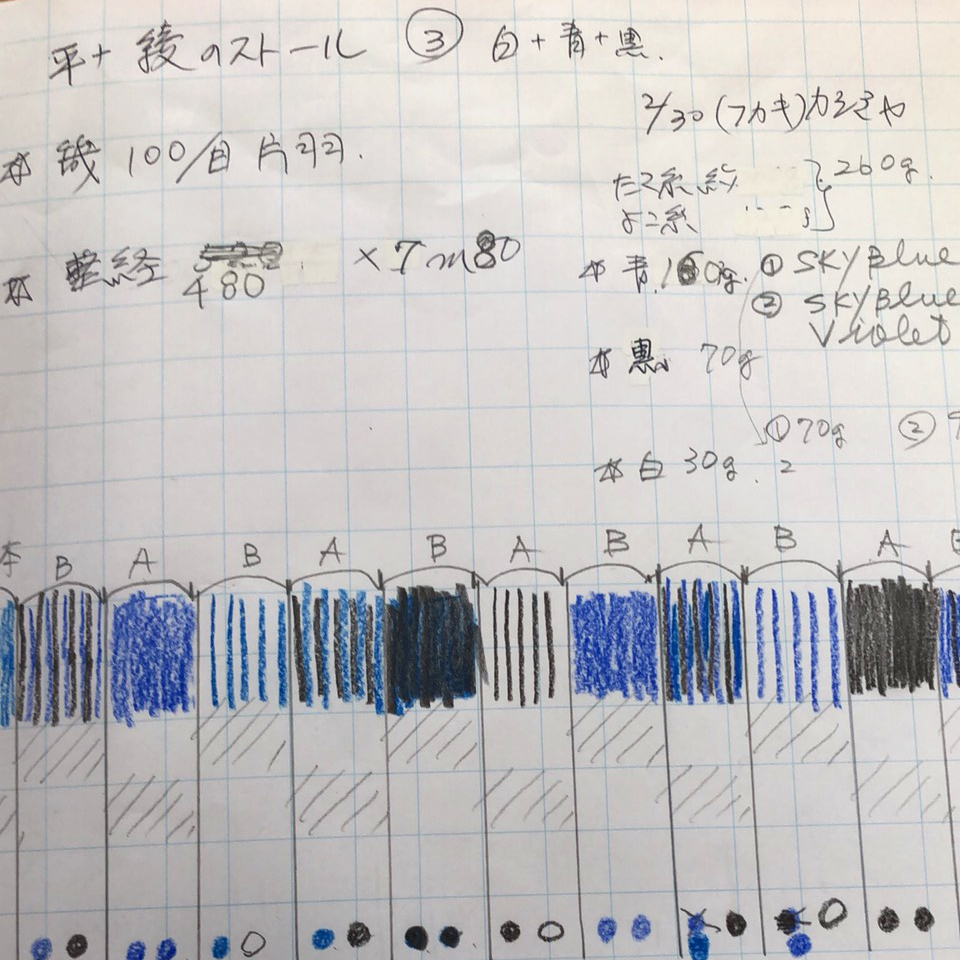 平+綾のストール ③ 白+青+黒.
2/30 (フカキ)カシミヤ
☆ 筬 100/目 片羽.
たて糸 総 }260g.
よこ糸
☆ 整経 480 ×7m80
☆ 青. 160g. ① SKY Blue
② SKY Blue
Violet
☆ 黒 70g
① 70g ②
☆ 白 30g. 2
B A B A B A B A B A